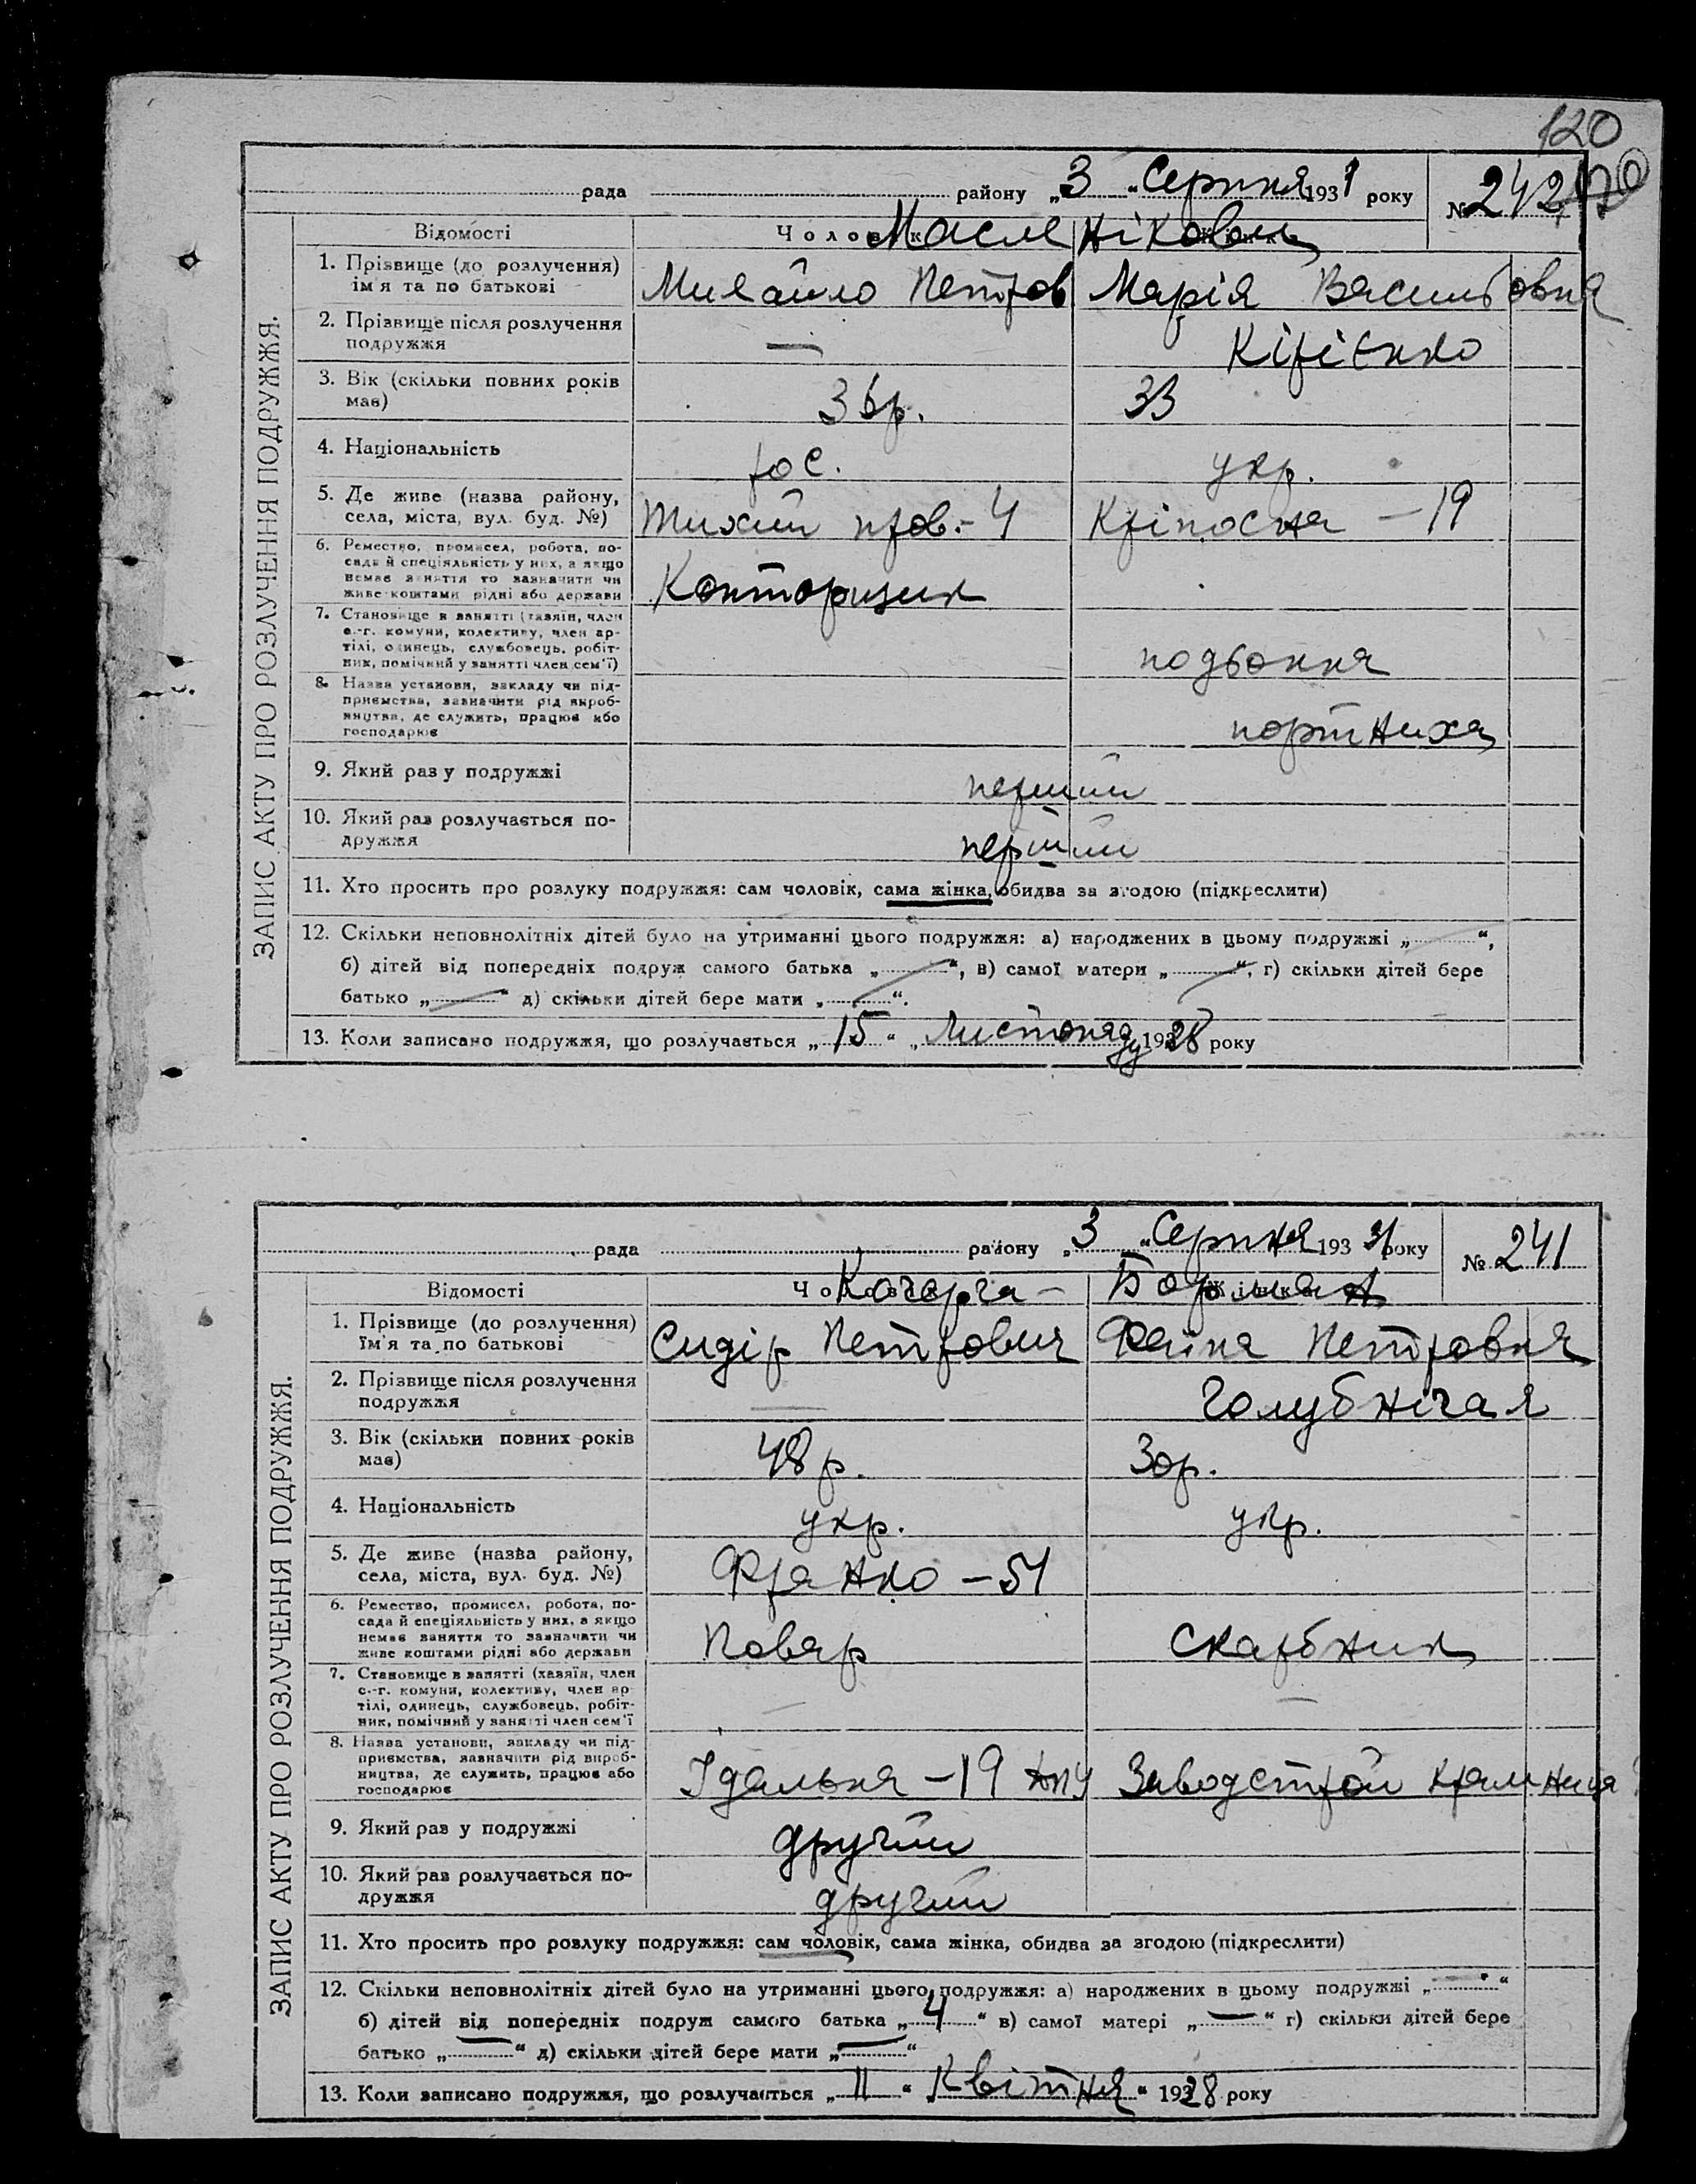 120
рада района „3 „Серпня 1931 року № 242
Відомості Чоловік Масленікови Жінка
1. Прізвище (до розлучення) ім'я та по батькові Михайло Петров Марія Васильовна
2. Прізвище після розлучення подружжя — Кірієнко
3. Вік (скільки повних років має) 36р. 33
4. Національність рос. укр.
5. Де живе (назва району, села, міста, вул. буд. №) Тихий пров. - 4 Кріпосна - 19
6. Ремество, промисел, робота, посада й спеціяльність у них, а якщо немає заняття то зазначити чи живе коштами рідні або держави Конторщик
7. Становище в занятті (хазяїн, член с.-г. комуни, колективу, член артілі, одинець, службовець, робітник, помічний у занятті член сем'ї) подьонна
8. Назва установи, закладу чи підприємства, зазначити рід виробництва, де служить, працює або господарює портниха
9. Який раз у подружжі перший
10. Який раз розлучається подружжя перший
11. Хто просить про розлуку подружжя: сам чоловік, сама жінка, обидва за згодою (підкреслити)
12. Скільки неповнолітніх дітей було на утриманні цього подружжя: а) народжених в цьому подружжі „ “,
б) дітей від попередніх подруж самого батька „ “, в) самої матери „ “, г) скільки дітей бере
батько „ “ д) скільки дітей бере мати „ “.
13. Коли записано подружжя, що розлучається „15“ „Листопаду 1928 року
ЗАПИС АКТУ ПРО РОЗЛУЧЕННЯ ПОДРУЖЖЯ.
рада району „3 „Серпня 1931 року № 241
Відомості Чоловік Кочерга - Борман Жінка
1. Прізвище (до розлучення) ім'я та по батькові Сидір Петрович Феина Петровна
2. Прізвище після розлучення подружжя — Голубнічая
3. Вік (скільки повних років має) 48р. 30р.
4. Національність укр. укр.
5. Де живе (назва району, села, міста, вул. буд. №) Франко - 51
6. Ремество, промисел, робота, посада й спеціяльність у них, а якщо немає заняття то зазначати чи живе коштами рідні або держави Повар Скарбник
7. Становище в занятті (хазяїн, член с.-г. комуни, колективу, член артілі, одинець, службовець, робітник, помічний у занятті член сем'ї — —
8. Назва установи, закладу чи підприємства, зазначити рід виробництва, де служить, працює або господарює Їдальня - 19 Заводстрой крамниця
9. Який раз у подружжі другий
10. Який раз розлучається подружжя другий
11. Хто просить про розлуку подружжя: сам чоловік, сама жінка, обидва за згодою (підкреслити)
12. Скільки неповнолітніх дітей було на утриманні цього подружжя: а) народжених в цьому подружжі „—“
б) дітей від попередніх подруж самого батька „4“ в) самої матері „—“ г) скільки дітей бере
батько „—“ д) скільки дітей бере мати „—“
13. Коли записано подружжя, що розлучається „11“ „Квітня“ 1928 року
ЗАПИС АКТУ ПРО РОЗЛУЧЕННЯ ПОДРУЖЖЯ.